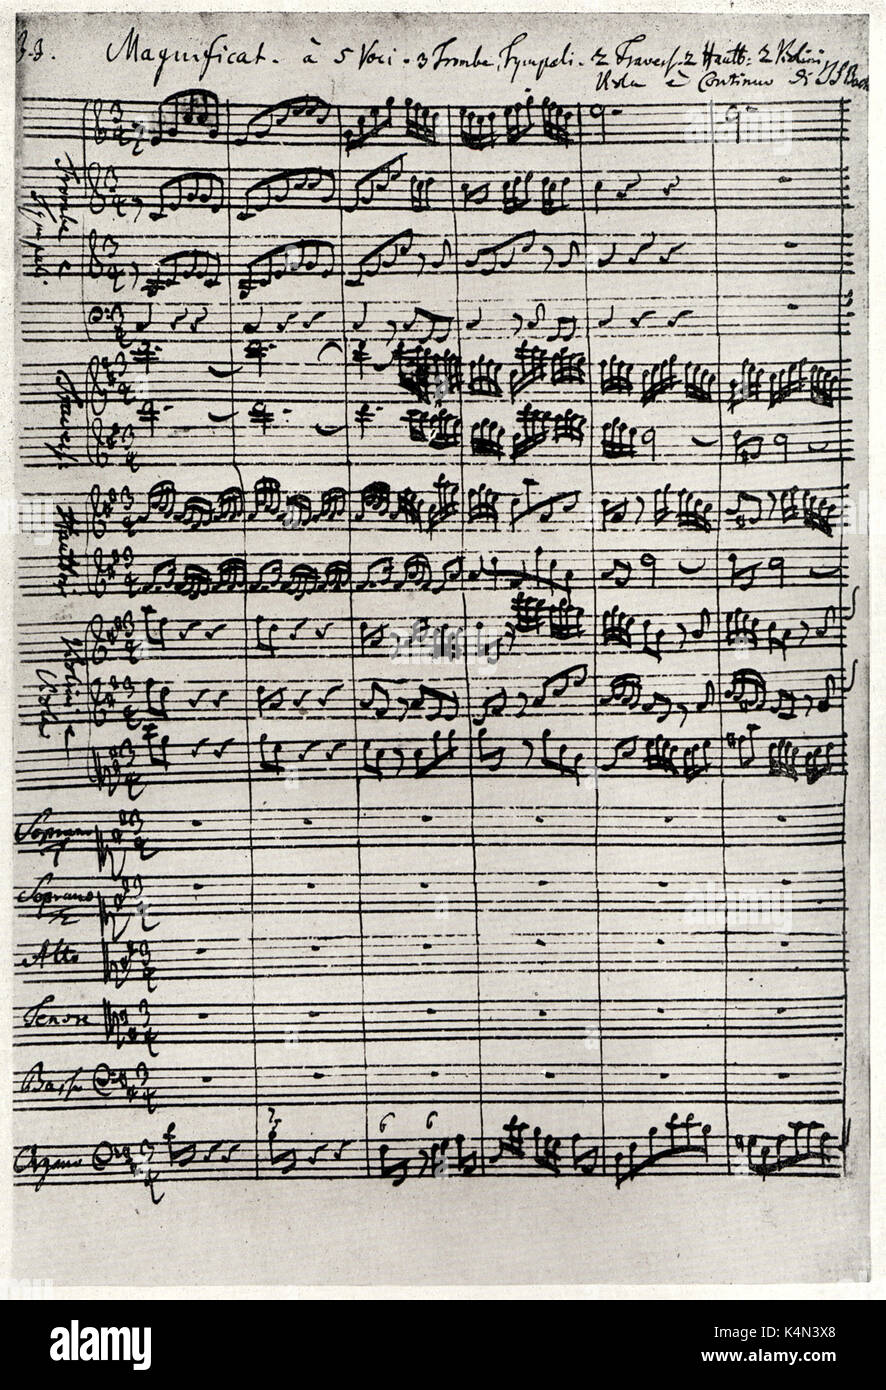 J.J. Magnificat. à 5 Voci. 3 Trombe, Tympali. 2 Travers. 2 Hautb: 2 Violini
Viola è Continuo di JS Bach
Trombe e
Tympali.
Travers.
Hautb:
Violini e
Viola
Soprano 1
Soprano 2
Alto
Tenore
Basso
Organo
7
5
6 6
alamy
Image ID: K4N3X8
www.alamy.com